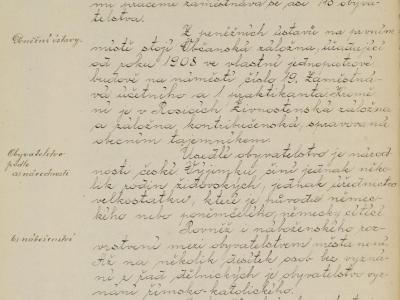 mi pracemi zaměstnává se asi 145 obyva-
telstva.
Peněžní ústavy.
Z peněžních ústavů na prvním
místě stojí Občanská záložna, úřadující
od roku 1908 ve vlastní jednopatrové
budově na náměstí číslo 19. Zaměstná-
vá účetního a 1 praktikanta. Kromě
ní je v Rosicích Živnostenská záložna
a záložna kontribučenská, spravovaná
obecním tajemníkem.
Obyvatelstvo
podle
a) národnosti
Usedlé obyvatelstvo je národ-
nosti české. Výjimku činí jednak něko-
lik rodin židovských, jednak úřednictvo
velkostatku, které je původu němec-
kého nebo poněmčelého, německy cítící.
b) náboženství
Rovněž i náboženského roz-
vrstvení mezi obyvatelstvem města není.
Až na několik desítek osob bez vyzná-
ní z řad dělnických je obyvatelstvo vy-
znání římsko-katolického.